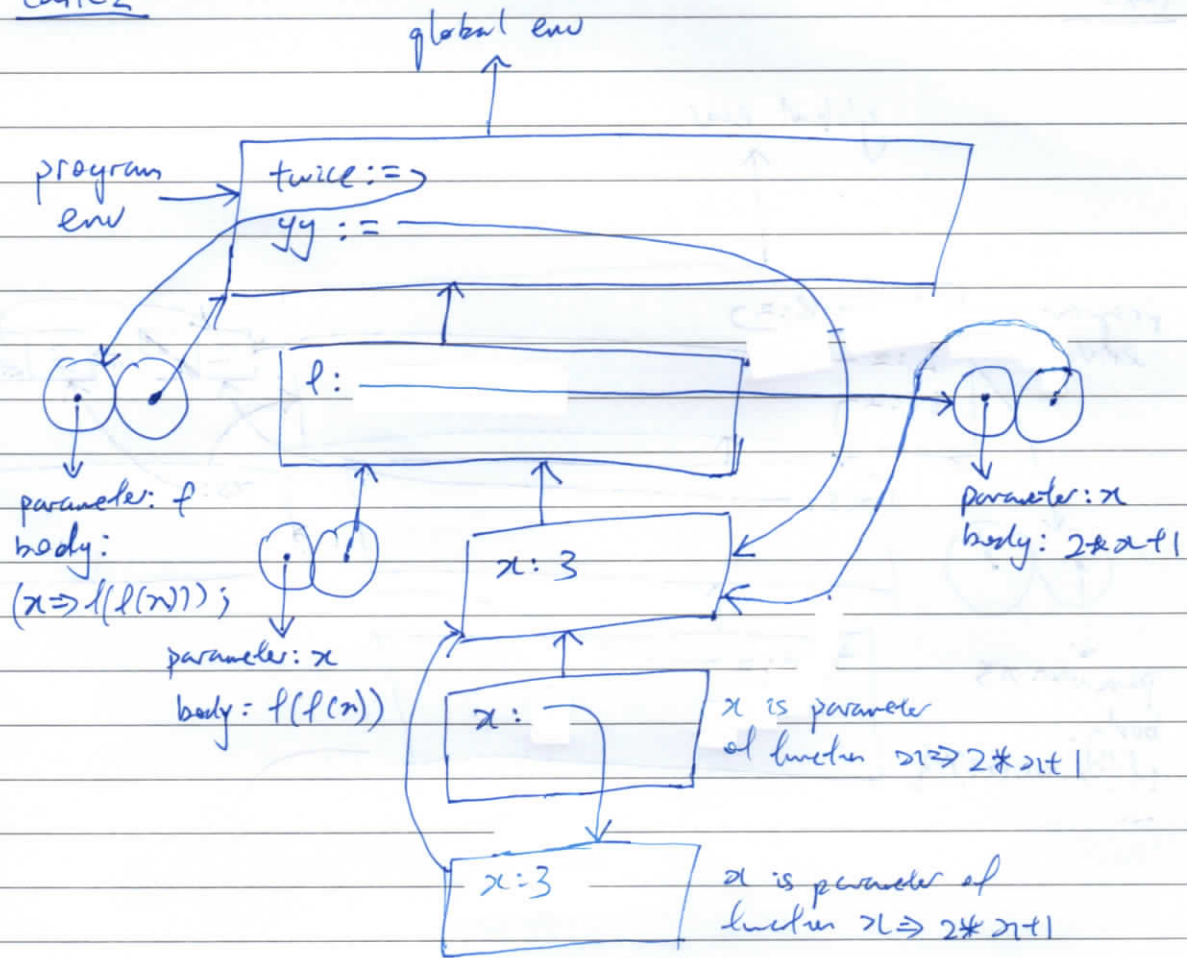 global env
program
env
twice :=
yy :=
f:
parameter: f
body:
(x => f(f(x)));
parameter: x
body: 2*x+1
x: 3
parameter: x
body: f(f(x))
x:
x is parameter
of function x => 2*x+1
x: 3
x is parameter of
function x => 2*x+1